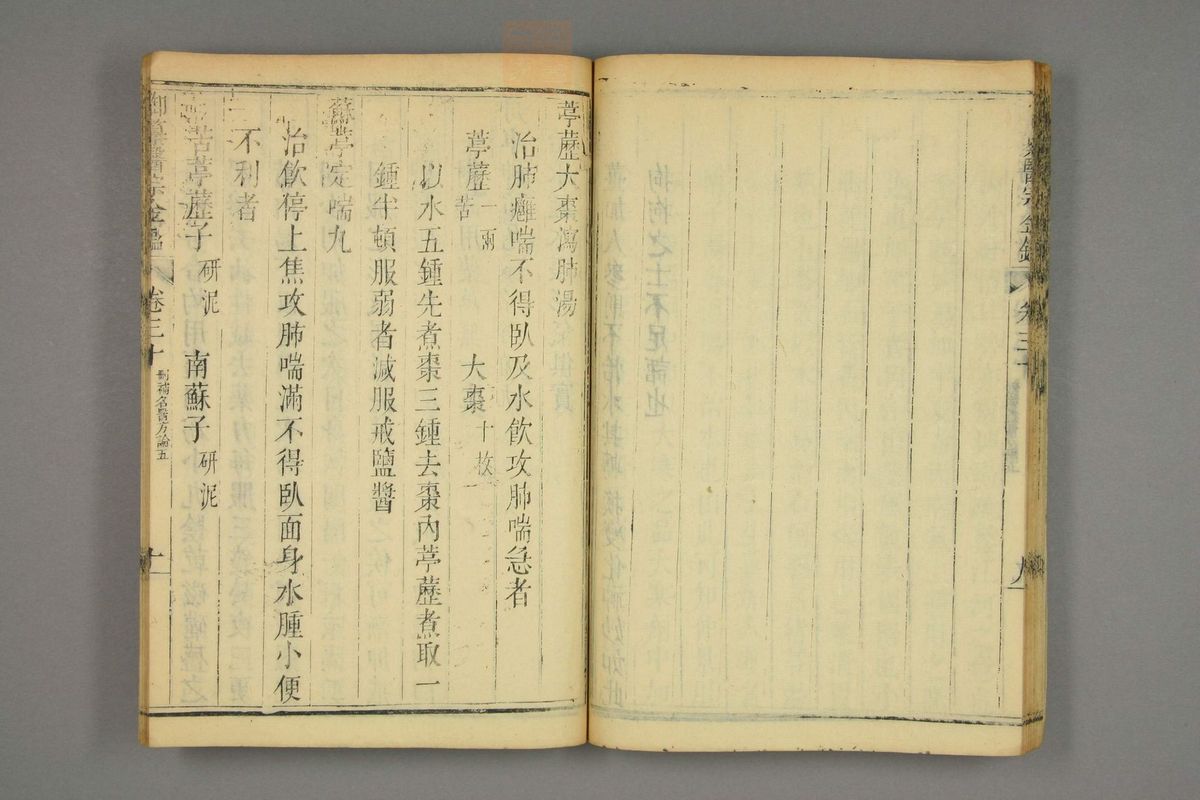 葶藶大棗瀉肺湯
治肺癰喘不得臥及水飲攻肺喘急者
葶藶 苦 一兩 大棗 十枚
以水五鍾先煮棗三鍾去棗內葶藶煮取一
鍾半頓服弱者減服戒鹽醬
蘇葶定喘丸
治飲停上焦攻肺喘滿不得臥面身水腫小便
不利者
苦葶藶子 研泥 南蘇子 研泥
御纂醫宗金鑑 卷三十 刪補名醫方論五 十
醫宗金鑑 卷三十 九